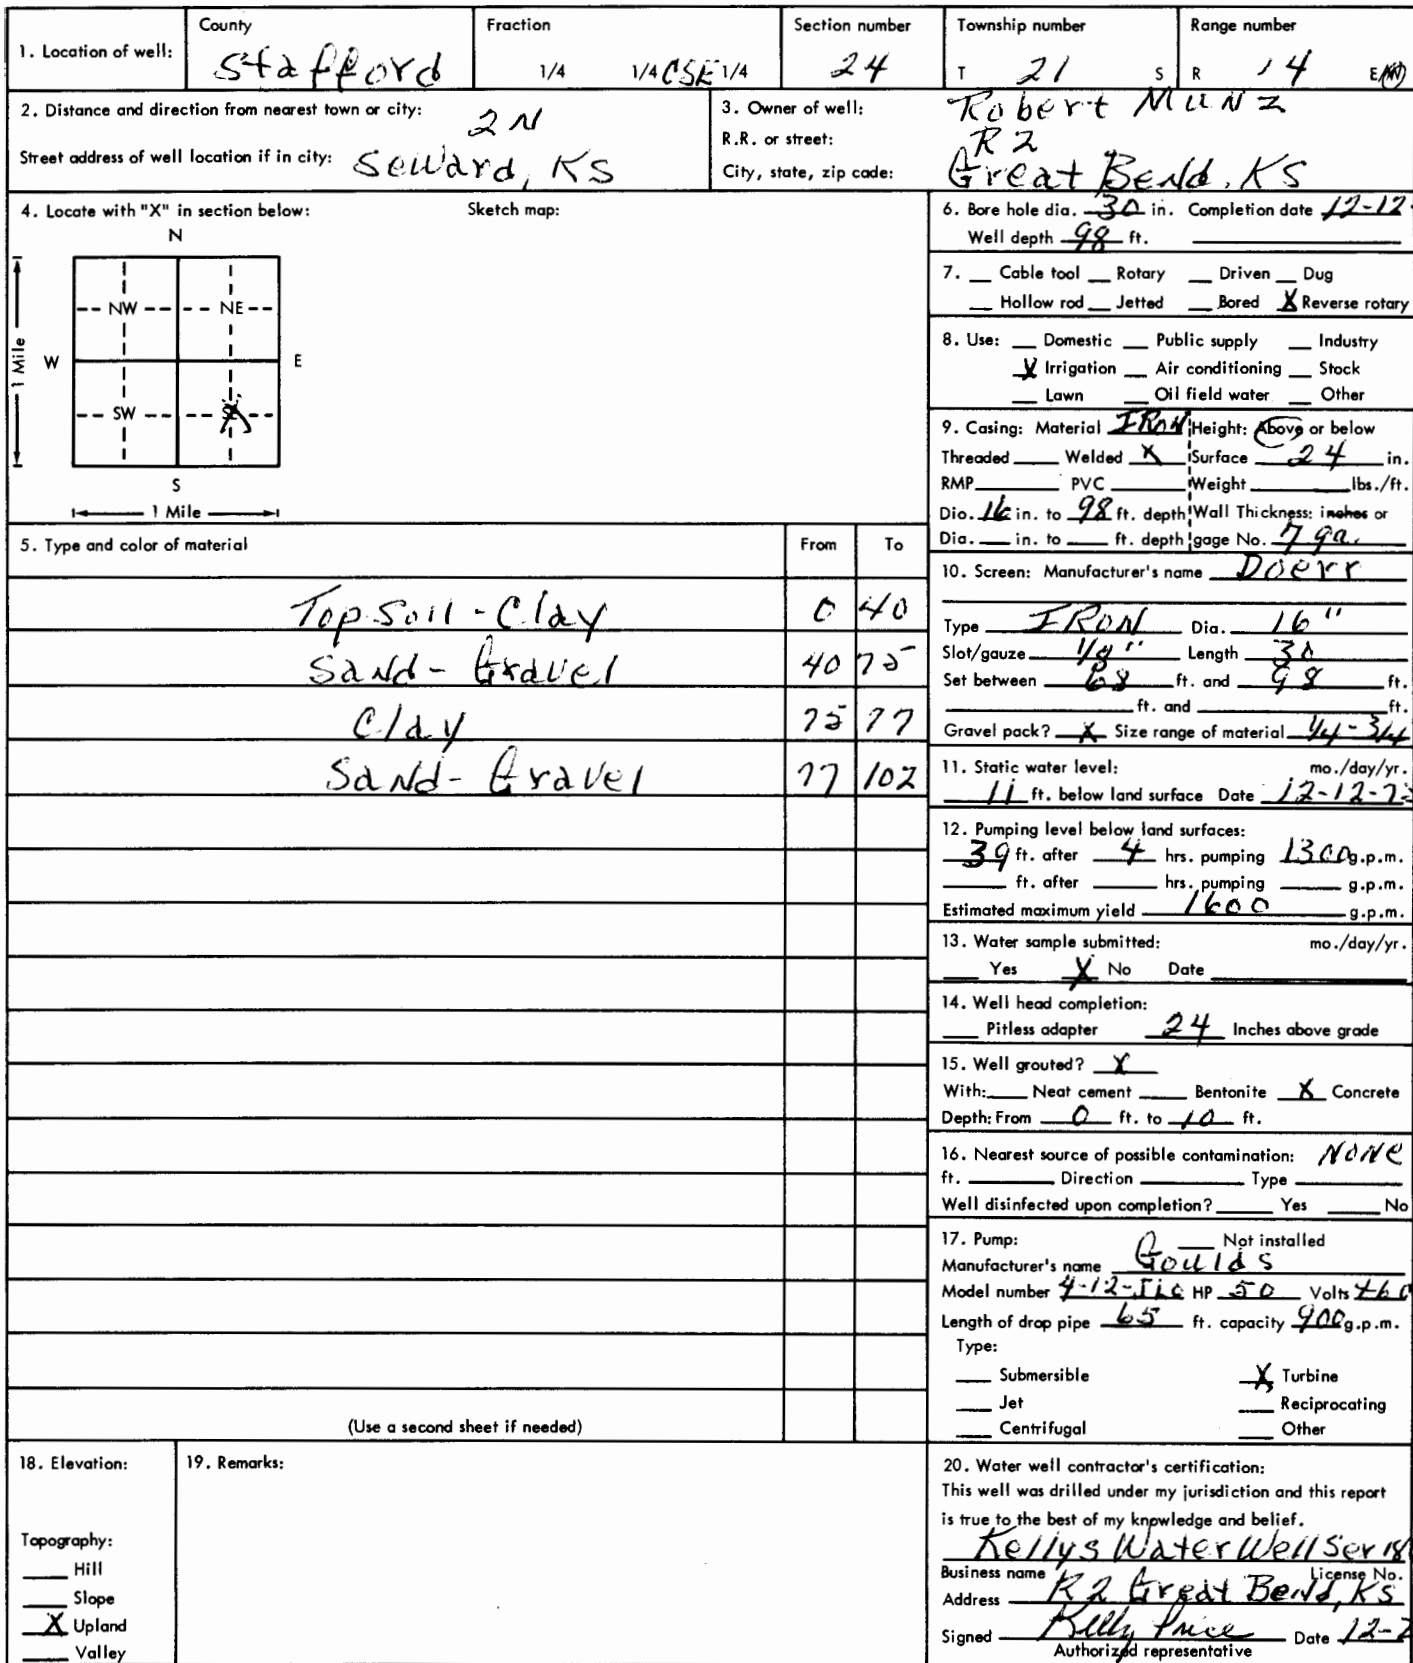 1. Location of well: County Stafford Fraction 1/4 1/4 CSE 1/4 Section number 24 Township number T 21 S Range number R 14 E/W
2. Distance and direction from nearest town or city: 2N
Street address of well location if in city: Seward, KS
3. Owner of well: Robert Munz
R.R. or street: R2
City, state, zip code: Great Bend, KS
4. Locate with "X" in section below: Sketch map:
N
NW NE
W E
1 Mile
SW SE
S
1 Mile
5. Type and color of material From To
Top Soil - Clay 0 40
Sand - Gravel 40 75
Clay 75 77
Sand - Gravel 77 102
(Use a second sheet if needed)
6. Bore hole dia. 30 in. Completion date 12-12-
Well depth 98 ft.
7. __ Cable tool __ Rotary __ Driven __ Dug
__ Hollow rod __ Jetted __ Bored X Reverse rotary
8. Use: __ Domestic __ Public supply __ Industry
X Irrigation __ Air conditioning __ Stock
__ Lawn __ Oil field water __ Other
9. Casing: Material IRON Height: Above or below
Threaded ____ Welded X Surface 24 in.
RMP ____ PVC ____ Weight ____ lbs./ft.
Dio. 16 in. to 98 ft. depth Wall Thickness: inches or
Dia. __ in. to __ ft. depth gage No. 7 ga.
10. Screen: Manufacturer's name Doerr
Type IRON Dia. 16"
Slot/gauze 1/8" Length 30
Set between 68 ft. and 98 ft.
____ ft. and ____ ft.
Gravel pack? X Size range of material 1/4 - 3/4
11. Static water level: mo./day/yr.
11 ft. below land surface Date 12-12-7
12. Pumping level below land surfaces:
39 ft. after 4 hrs. pumping 1300 g.p.m.
____ ft. after ____ hrs. pumping ____ g.p.m.
Estimated maximum yield 1600 g.p.m.
13. Water sample submitted: mo./day/yr.
__ Yes X No Date ____
14. Well head completion:
__ Pitless adapter 24 Inches above grade
15. Well grouted? X
With: __ Neat cement __ Bentonite X Concrete
Depth: From 0 ft. to 10 ft.
16. Nearest source of possible contamination: NONE
ft. ____ Direction ____ Type ____
Well disinfected upon completion? ____ Yes ____ No
17. Pump: __ Not installed
Manufacturer's name Goulds
Model number HP 50 Volts 460
Length of drop pipe 65 ft. capacity 900 g.p.m.
Type:
__ Submersible X Turbine
__ Jet __ Reciprocating
__ Centrifugal __ Other
18. Elevation:
Topography:
__ Hill
__ Slope
X Upland
__ Valley
19. Remarks:
20. Water well contractor's certification:
This well was drilled under my jurisdiction and this report
is true to the best of my knowledge and belief.
Kellys Water Well Ser 18
Business name License No.
Address R2 Great Bend, KS
Signed Kelly Price Date 12-
Authorized representative